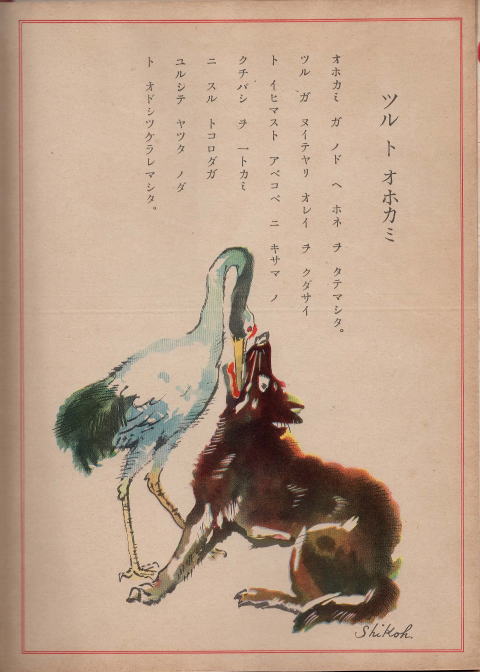 ツル ト オホカミ
オホカミ ガ ノド ヘ ホネ ヲ タテマシタ。
ツル ガ ヌイテヤリ オレイ ヲ クダサイ
ト イヒマスト アベコベ ニ キサマ ノ
クチバシ ヲ 一トカミ
ニ スル トコロダガ
ユルシテ ヤツタ ノダ
ト オドシツケラレマシタ。
Shikoh.